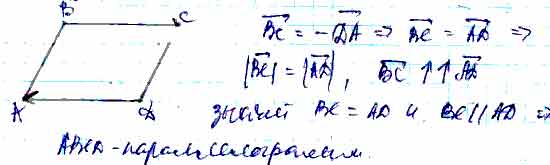 B C
A D
\overrightarrow{BC} = -\overrightarrow{DA} => \overrightarrow{BC} = \overrightarrow{AD} =>
|\overrightarrow{BC}| = |\overrightarrow{AD}|, \overrightarrow{BC} ↑↑ \overrightarrow{AD}
значит BC = AD и BC || AD =>
ABCD - параллелограмм.